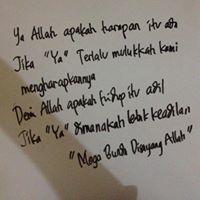 Ya Allah apakah harapan itu ada
Jika "Ya" Terlalu mulukkah kami
mengharapkannya
Demi Allah apakah hidup itu adil
Jika "Ya" dimanakah letak keadilan
"Moga Bunda Disayang Allah"